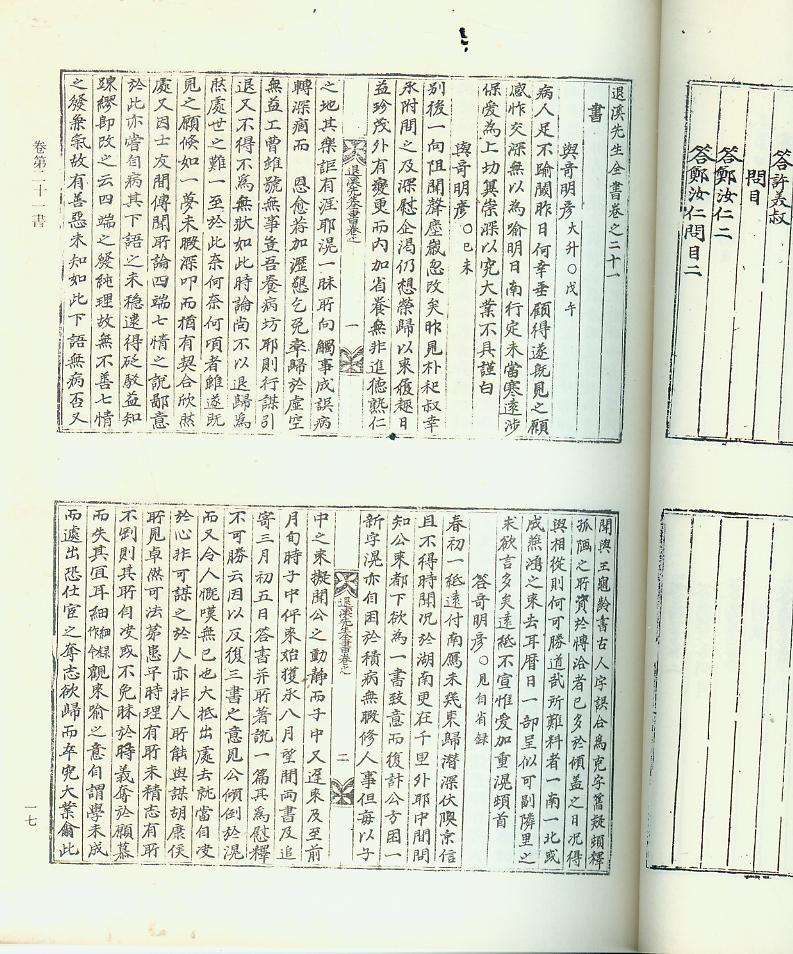 答許美叔
問目
答鄭汝仁二
答鄭汝仁問目二
退溪先生全書卷之二十一
書
與奇明彦 大升○戊午
病人足不踰閾昨日何幸垂顧得遂既見之願
感怍交深無以爲喻明日南行定未當寒遠涉
保愛為上切冀崇深以究大業不具謹白
與奇明彦 ○己未
别後一向阻聞聲塵歲忽改矣昨見朴和叔幸
承附問之及深慰企渴仍想榮歸以來履趣日
益珍茂外有變更而內加省養無非進德熟仁
退溪先生全書卷之 一
之地其樂詎有涯耶滉一昧所向觸事成誤病
轉深痼而 恩愈若加瀝懇乞免率歸於虛空
無益工曹雖號無事豈吾養病坊耶則行謀引
退又不得不爲無狀如此時論尚不以退歸爲
然處世之難一至於此奈何奈何頃者雖遂既
見之願倏如一夢未暇深叩而猶有契合欣然
處又因士友間傳聞所論四端七情之說鄙意
於此亦嘗自病其下語之未穩逮得砭駁益知
踈繆即改之云四端之發純理故無不善七情
之發兼氣故有善惡未知如此下語無病否又
聞與王寇齡書古人字誤合爲克字舊疑頓釋
孤陋之所資於博洽者已多於傾蓋之日况得
與相從則何可勝道哉所難料者一南一北或
成燕鴻之來去耳曆日一部呈似可副隣里之
求欲言多矣遠紙不宣惟愛加重滉頓首
答奇明彦 ○見自省錄
春初一紙遠付南鴈未幾東歸潛深伏隩京信
且不得時聞况於湖南更在千里外耶中間聞
知公來都下欲為一書致意而復計公方困一
新字滉亦自困於積病無暇修人事但每以子
退溪先生全書卷之 二
中之來擬聞公之動靜而子中又遲來及至前
月旬時子中伻來始獲承八月望間兩書及追
寄三月初五日答書并所著說一篇其爲慰釋
不可勝云因以反復三書之意見公傾倒於滉
而又令人慨嘆無已也大抵出處去就當自決
於心非可謀之於人亦非人所能與謀胡康侯
所見卓然可法第患平時理有所未精志有所
不剛則其所自決或不免昧於時義奪於願慕
而失其宜耳細細一作今錄觀來喻之意自謂學未成
而遽出恐仕宦之奪志欲歸而卒究大業龠此
卷第二十一 書
一七